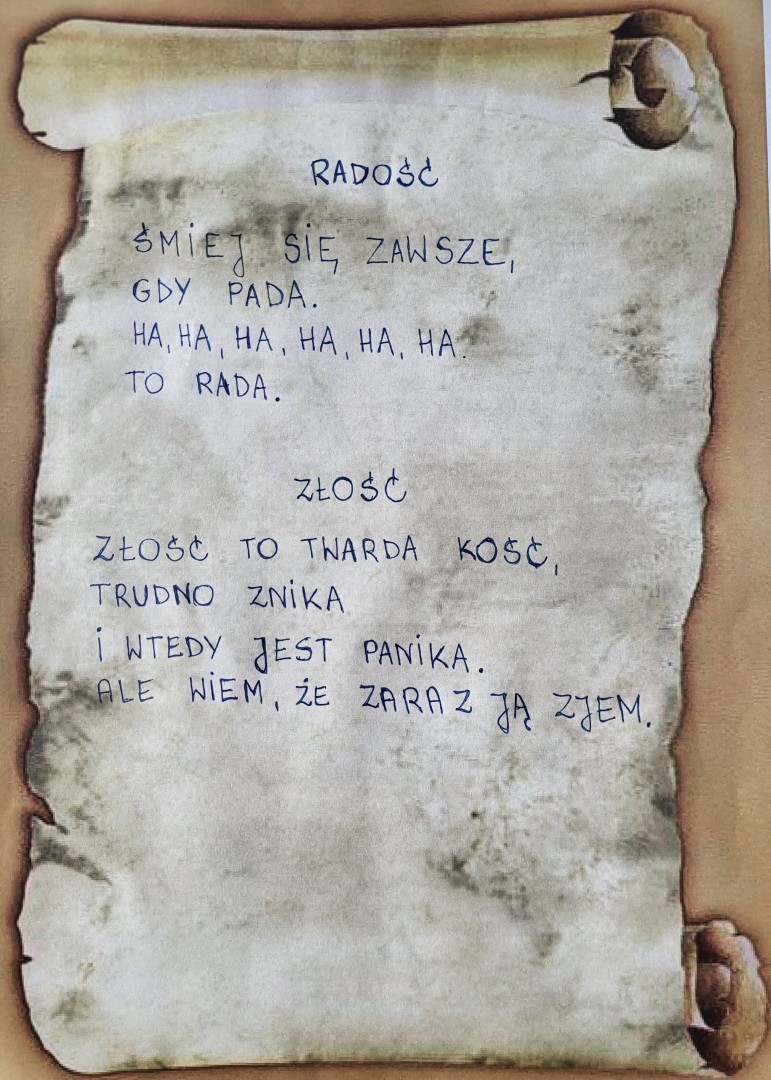 RADOŚĆ
ŚMIEJ SIĘ ZAWSZE,
GDY PADA.
HA, HA, HA, HA, HA, HA.
TO RADA.
ZŁOŚĆ
ZŁOŚĆ TO TWARDA KOŚĆ,
TRUDNO ZNIKA
I WTEDY JEST PANIKA.
ALE WIEM, ŻE ZARAZ JĄ ZJEM.